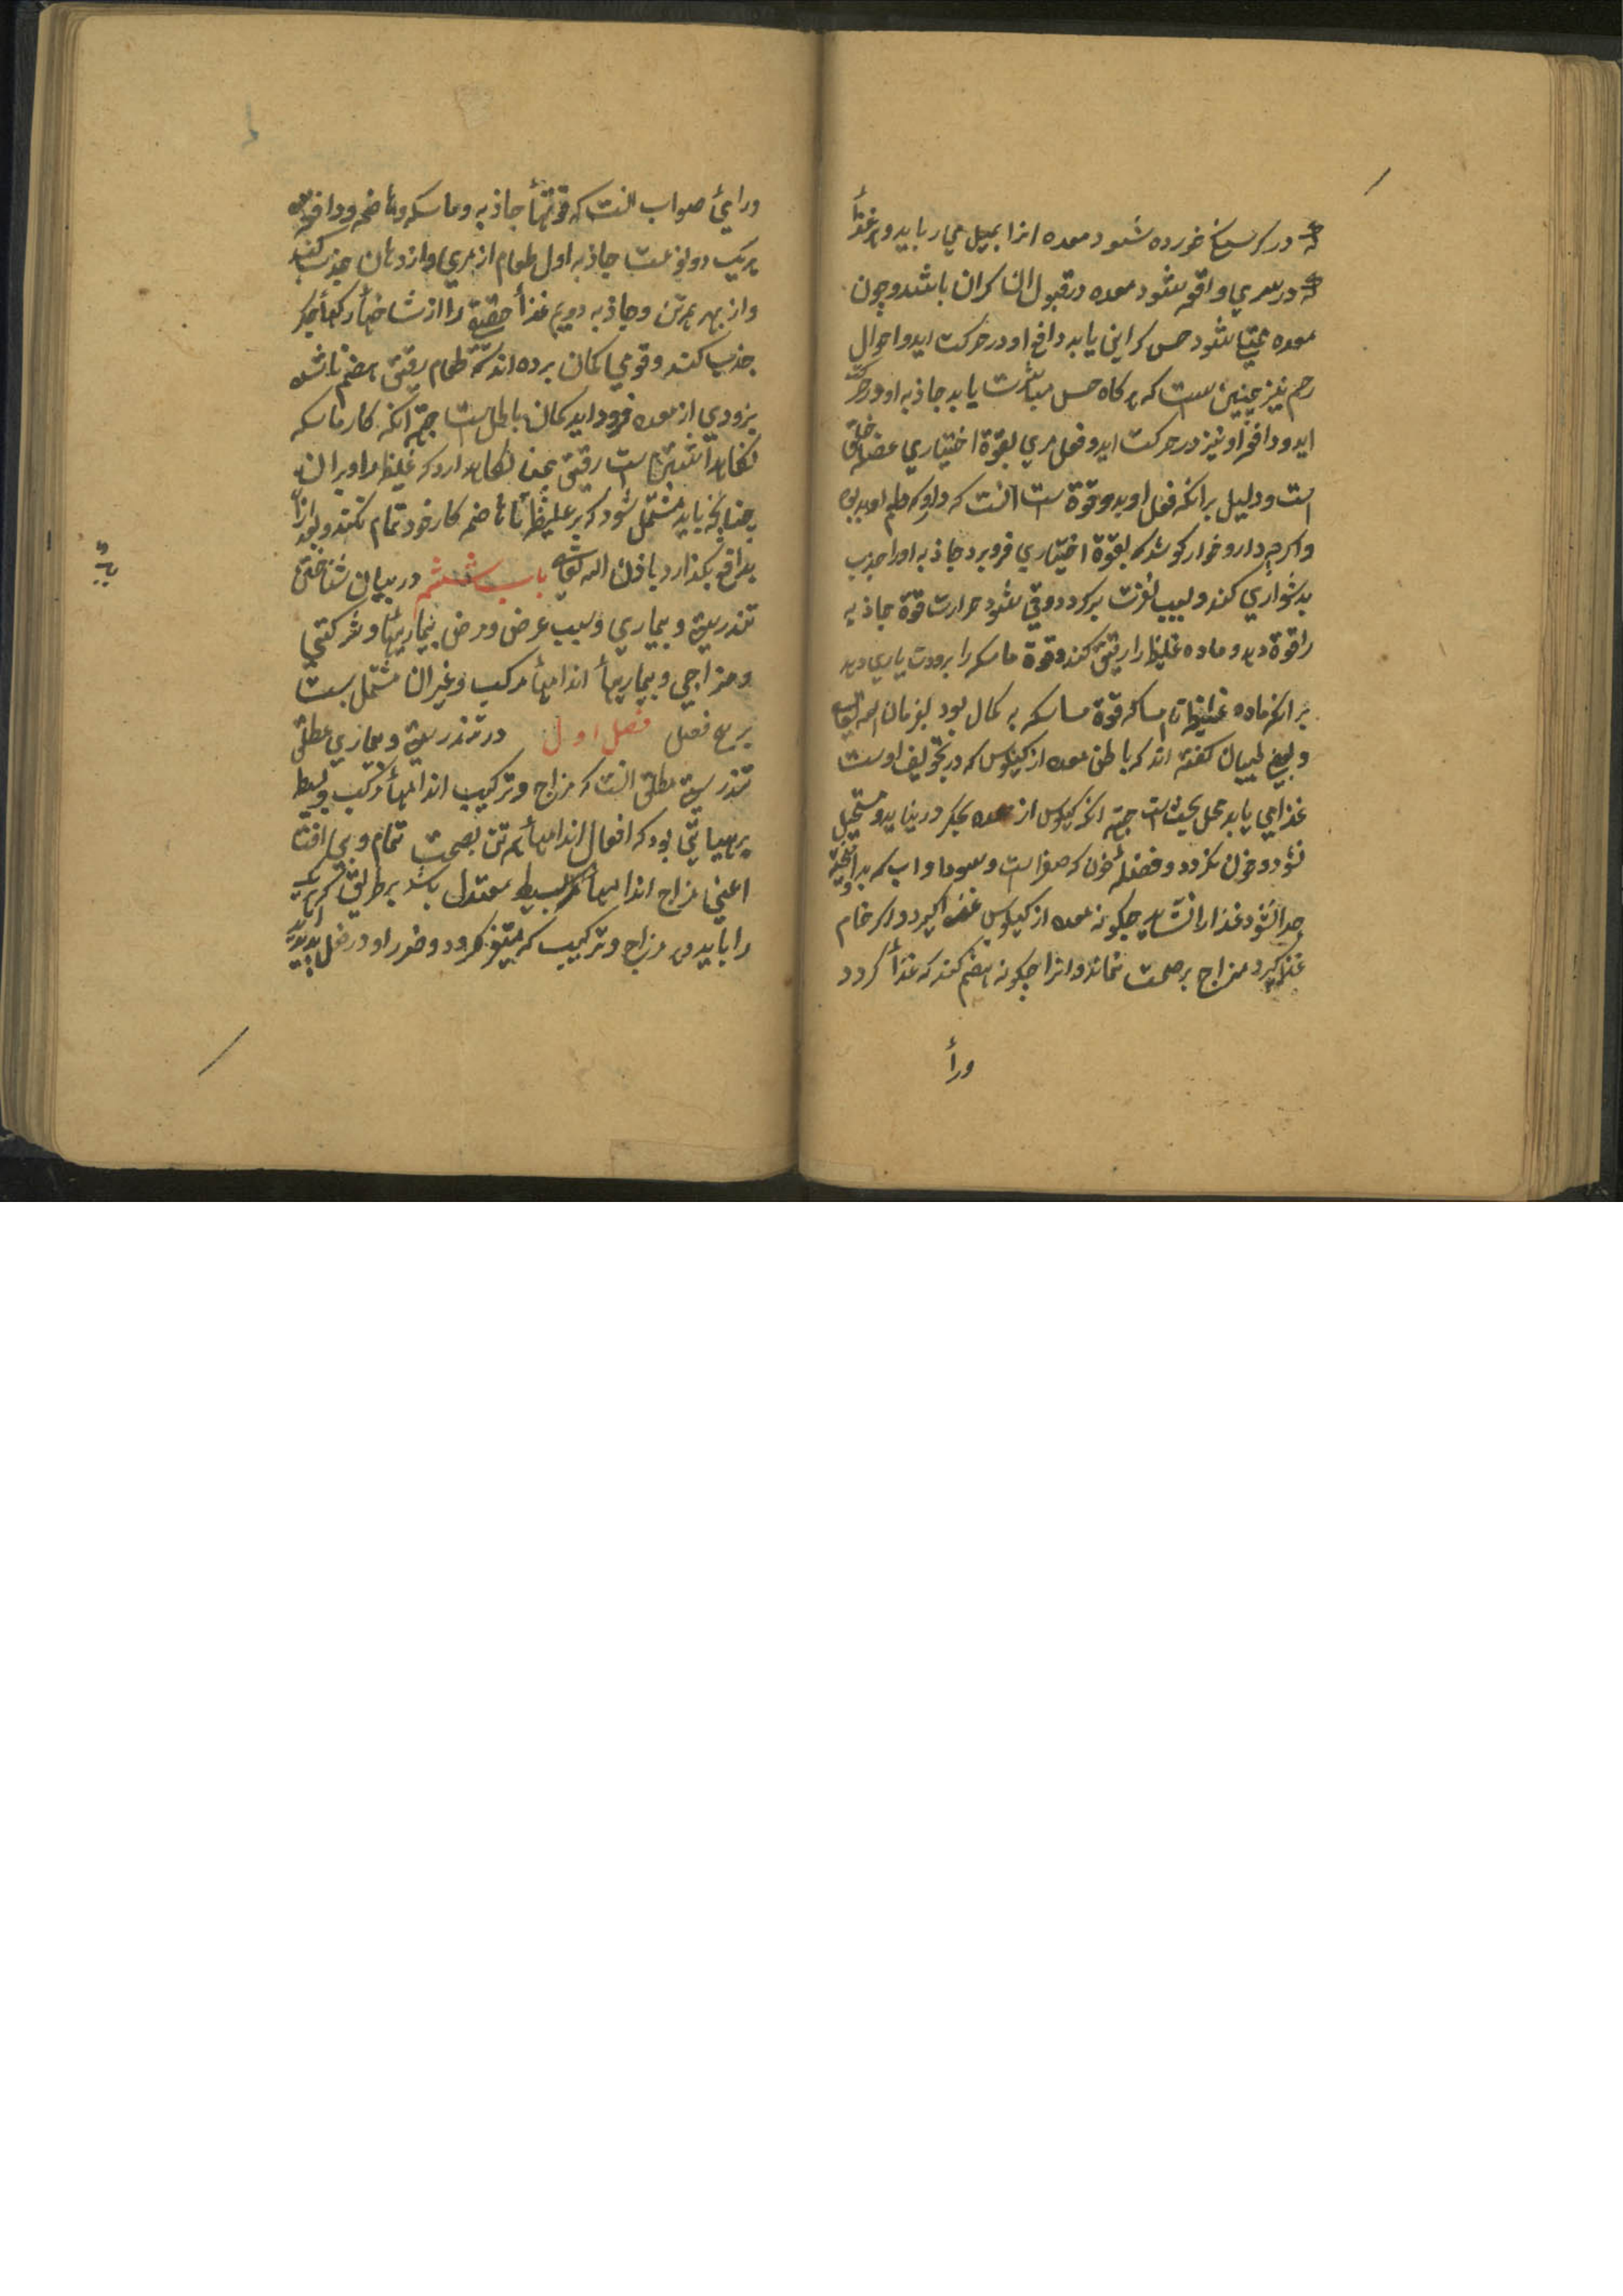 که در کرسنکی خورده شود معده انرا بمیل می رباید و هر غذأ
که در سیری واقع شود معده در قبول ان کران باشد و چون
معده ممتلی شود حس کرانی یابد دافع او در حرکت اید و احوال
رحم نیز چنین ست که هر کاه حس مباشرت یابد جاذبه او در حرکت
اید و دافع او نیز در حرکت اید و فعل مری بقوة اختیاری عضلهٔ حلق
است و دلیل برانکه فعل او بدو قوة است آنست که داروکه طعم او بد بود
و اکرچه دارو خوار کوشد که بقوة اختیاری فرو برد جاذبه او را جذب
بدشواری کند و بسبب نفرت برکردد و قی شود حرارت قوة جاذبه
را قوة دهد و ماده غلیظ را رقیق کند و قوة ماسکه را برودت یاری دهد
بر انکه ماده غلیظ تا مساکه قوة ماسکه به کمال بود بفرمان الله تعالی
و بعضی طبیبان کفته اند که باطن معده از کیلوس که در تجویف اوست
غذا می یابد محل بحث است جهة انکه کیلوس از معده بجکر در نیاید و مستحیل
نشود و خون نکردد و فضلهٔ خون که صفرا است و سودا و اب که بدو آمیخته
جدا نشود غذا را نشاید چکونه معده از کیلوس غذا کیرد و اکر خام
غذا کیرد مزاج بر صحت نماند و انرا چکونه هضم کند که غذأ کردد
ورأ
ورایئ صواب انست که قوتهأ جاذبه و ماسکه و هاضمه و دافعه
هر یک دو نوعست جاذبه اول طعام از مری و از دهان جذب کند
و از بهر همه تن و جاذبه دویم غذأ حقیقة را از شاخهأ رکهأ جکر
جذب کند و قومی کمان برده اند که طعام رقیق هضم ناشده
بزودی از معده فرود اید کمان باطل ست جهة انکه کار ماسکه
نکاهداشتن است رقیق همان نکاه دارد که غلیظ را و بر ان
چنانچه باید مشتمل شود که بر غلیظ تا هاضمه کار خود تمام نکند و بعد ازان
بدافع بکذارد باذن الله تعالی باب ششم در بیان شناختن
تندرستی و بیماری و سبب عرض و مرض بیماریهأ و شرکتی
و مزاجی و بیماریهأ اندامهأ مرکب و غیر ان مشتمل ست
بر سه فصل فصل اول در تندرستی و بیماری مطلق
تندرستی مطلق انست که مزاج و ترکیب اندامهأ مرکب و بسیط
بر هیاتی بود که افعال اندامهأ همه تن بصحت تمام و بی افت
اعنی مزاج اندامهأ بسیط معتدل باشد بر طریقی که هر یک
را باید در مزاج و ترکیب که متغیر کردد و ضرر او در فعل پدید